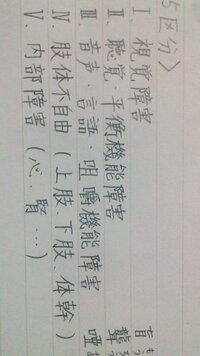 5区分〉
Ⅰ. 視覚障害 盲
Ⅱ. 聴覚・平衡機能障害 聾
Ⅲ. 音声、言語、咀嚼機能障害 唖
Ⅳ. 肢体不自由(上肢、下肢、体幹)
Ⅴ. 内部障害(心、腎…)